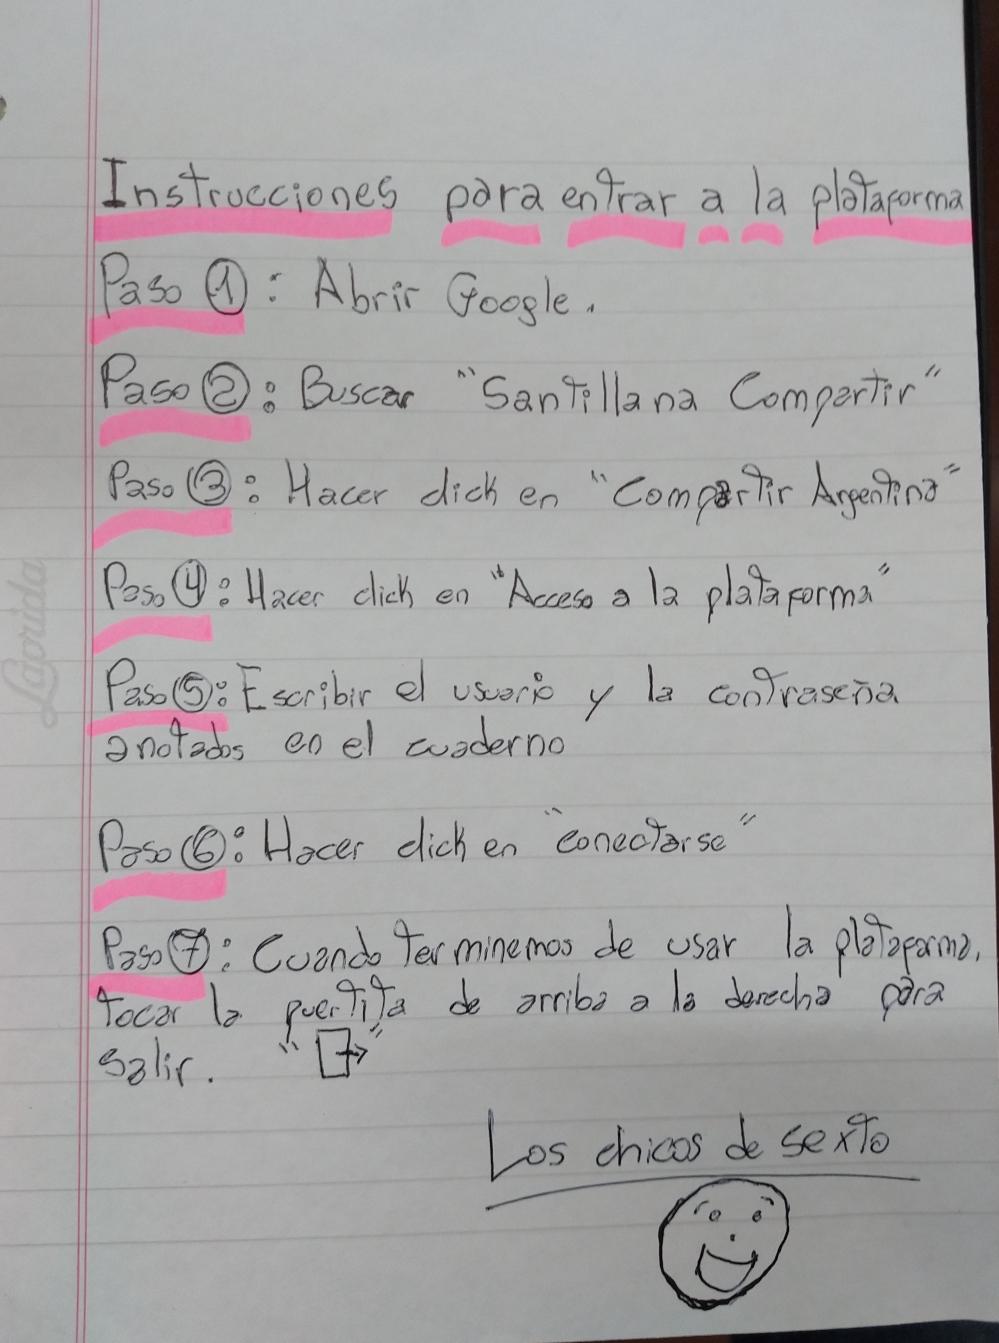 Instrucciones para entrar a la plataforma
Paso 1: Abrir Google.
Paso 2: Buscar "Santillana Compartir"
Paso 3: Hacer click en "Compartir Argentina"
Paso 4: Hacer click en "Acceso a la plataforma"
Paso 5: Escribir el usuario y la contraseña
anotados en el cuaderno
Paso 6: Hacer click en "conectarse"
Paso 7: Cuando terminemos de usar la plataforma,
tocar la puertita de arriba a la derecha para
salir. " "
Los chicos de sexto
Laprida